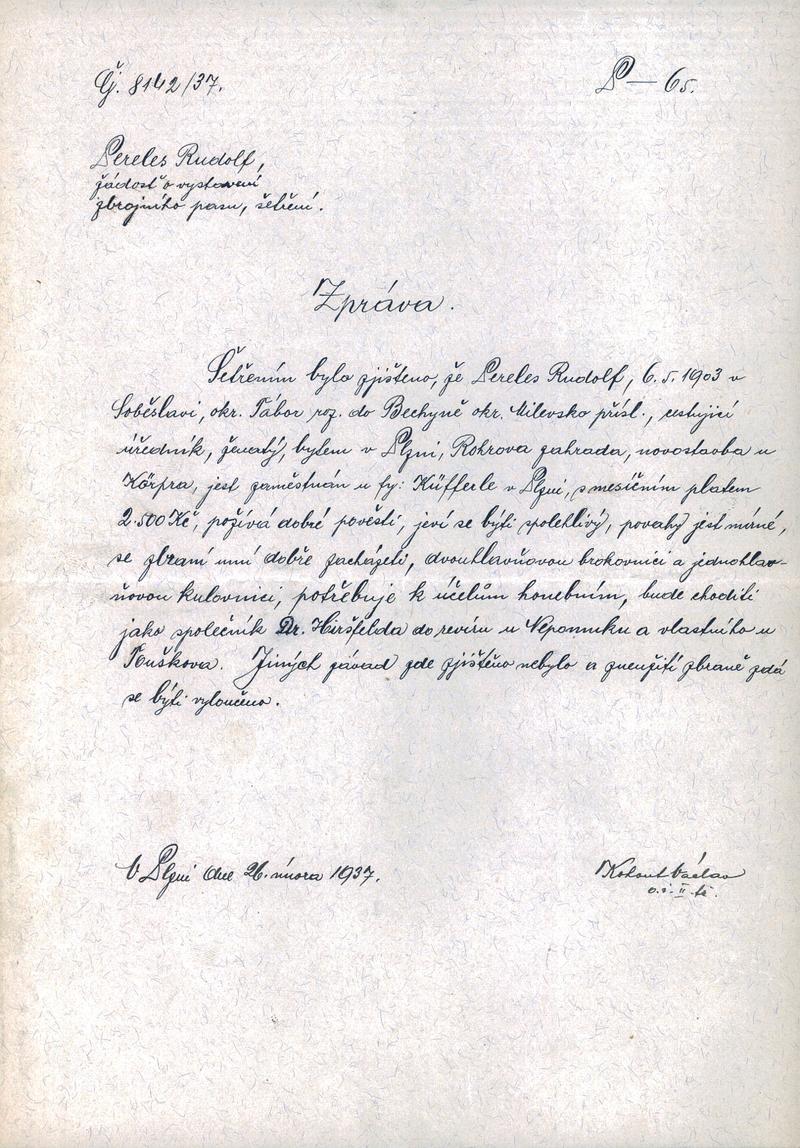 Čj. 8142/37. P – 65.
Pereles Rudolf,
žádost o vystavení
zbrojního pasu, šetření.
Zpráva.
Šetřením bylo zjištěno, že Pereles Rudolf, 6.5.1903 v
Soběslavi, okr. Tábor roz. do Bechyně okr. Milevsko přísl., cestující
úředník, ženatý, bytem v Plzni, Rohrova zahrada, novostavba u
Körpra, jest zaměstnán u fy: Küfferle v Plzni, s mesíčním platem
2.500 Kč, požívá dobré pověsti, jeví se býti spolehlivý, povahy jest mírné,
se zbraní umí dobře zacházeti, dvouhlavňovou brokovnici a jednohlav-
ňovou kulovnici, potřebuje k účelům honebním, bude choditi
jako společník Dr. Hiršfelda do revíru u Nepomuku a vlastního u
Touškova. Jiných závad zde zjištěno nebylo a zneužití zbraně zdá
se býti vyloučeno.
V Plzni dne 26. února 1937. Kohout Václav